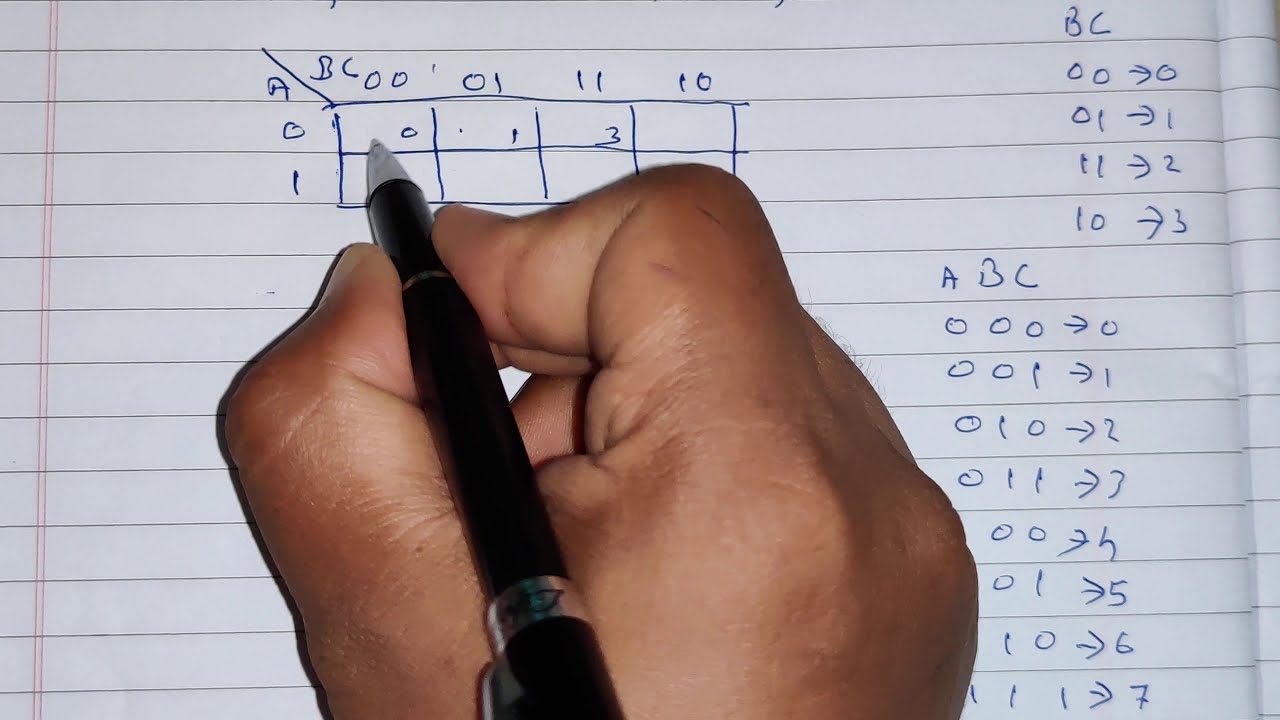 BC
A BC 00 01 11 10
0 0 1 3
1
00 → 0
01 → 1
11 → 2
10 → 3
A B C
0 0 0 → 0
0 0 1 → 1
0 1 0 → 2
0 1 1 → 3
0 0 → 4
0 1 → 5
1 0 → 6
1 1 1 → 7